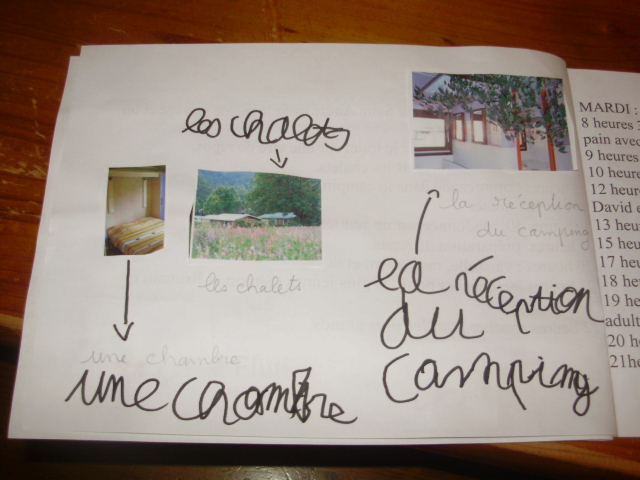 les chalets
la réception
du camping
les chalets
la réception
du
camping
une chambre
une chambre
MARDI :
8 heures 3
pain avec
9 heures
10 heure
12 heure
David e
13 heur
15 heur
17 heu
18 heu
19 he
adult
20 he
21he